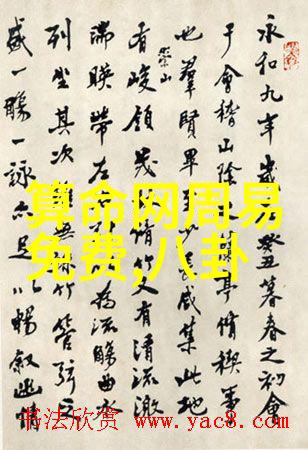 永和九年歲癸丑暮春之初會
于會稽山陰亭脩稧事
也羣賢畢至咸集此地
有崇山峻領茂脩竹又有清流激
湍暎帶左為流觴曲水
列坐其次無竹管弦之
盛一觴一詠亦足以暢敘幽情
算命网周易
免费,八卦
书法欣赏 www.yac8.com